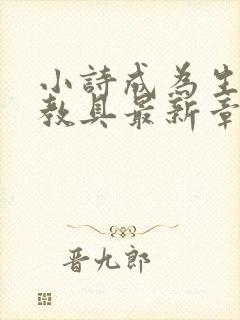 小詩成為生
教具最新章
晋九郎